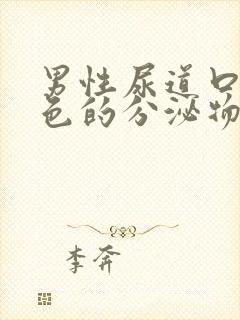 男性尿道口
色的分泌物
李奔